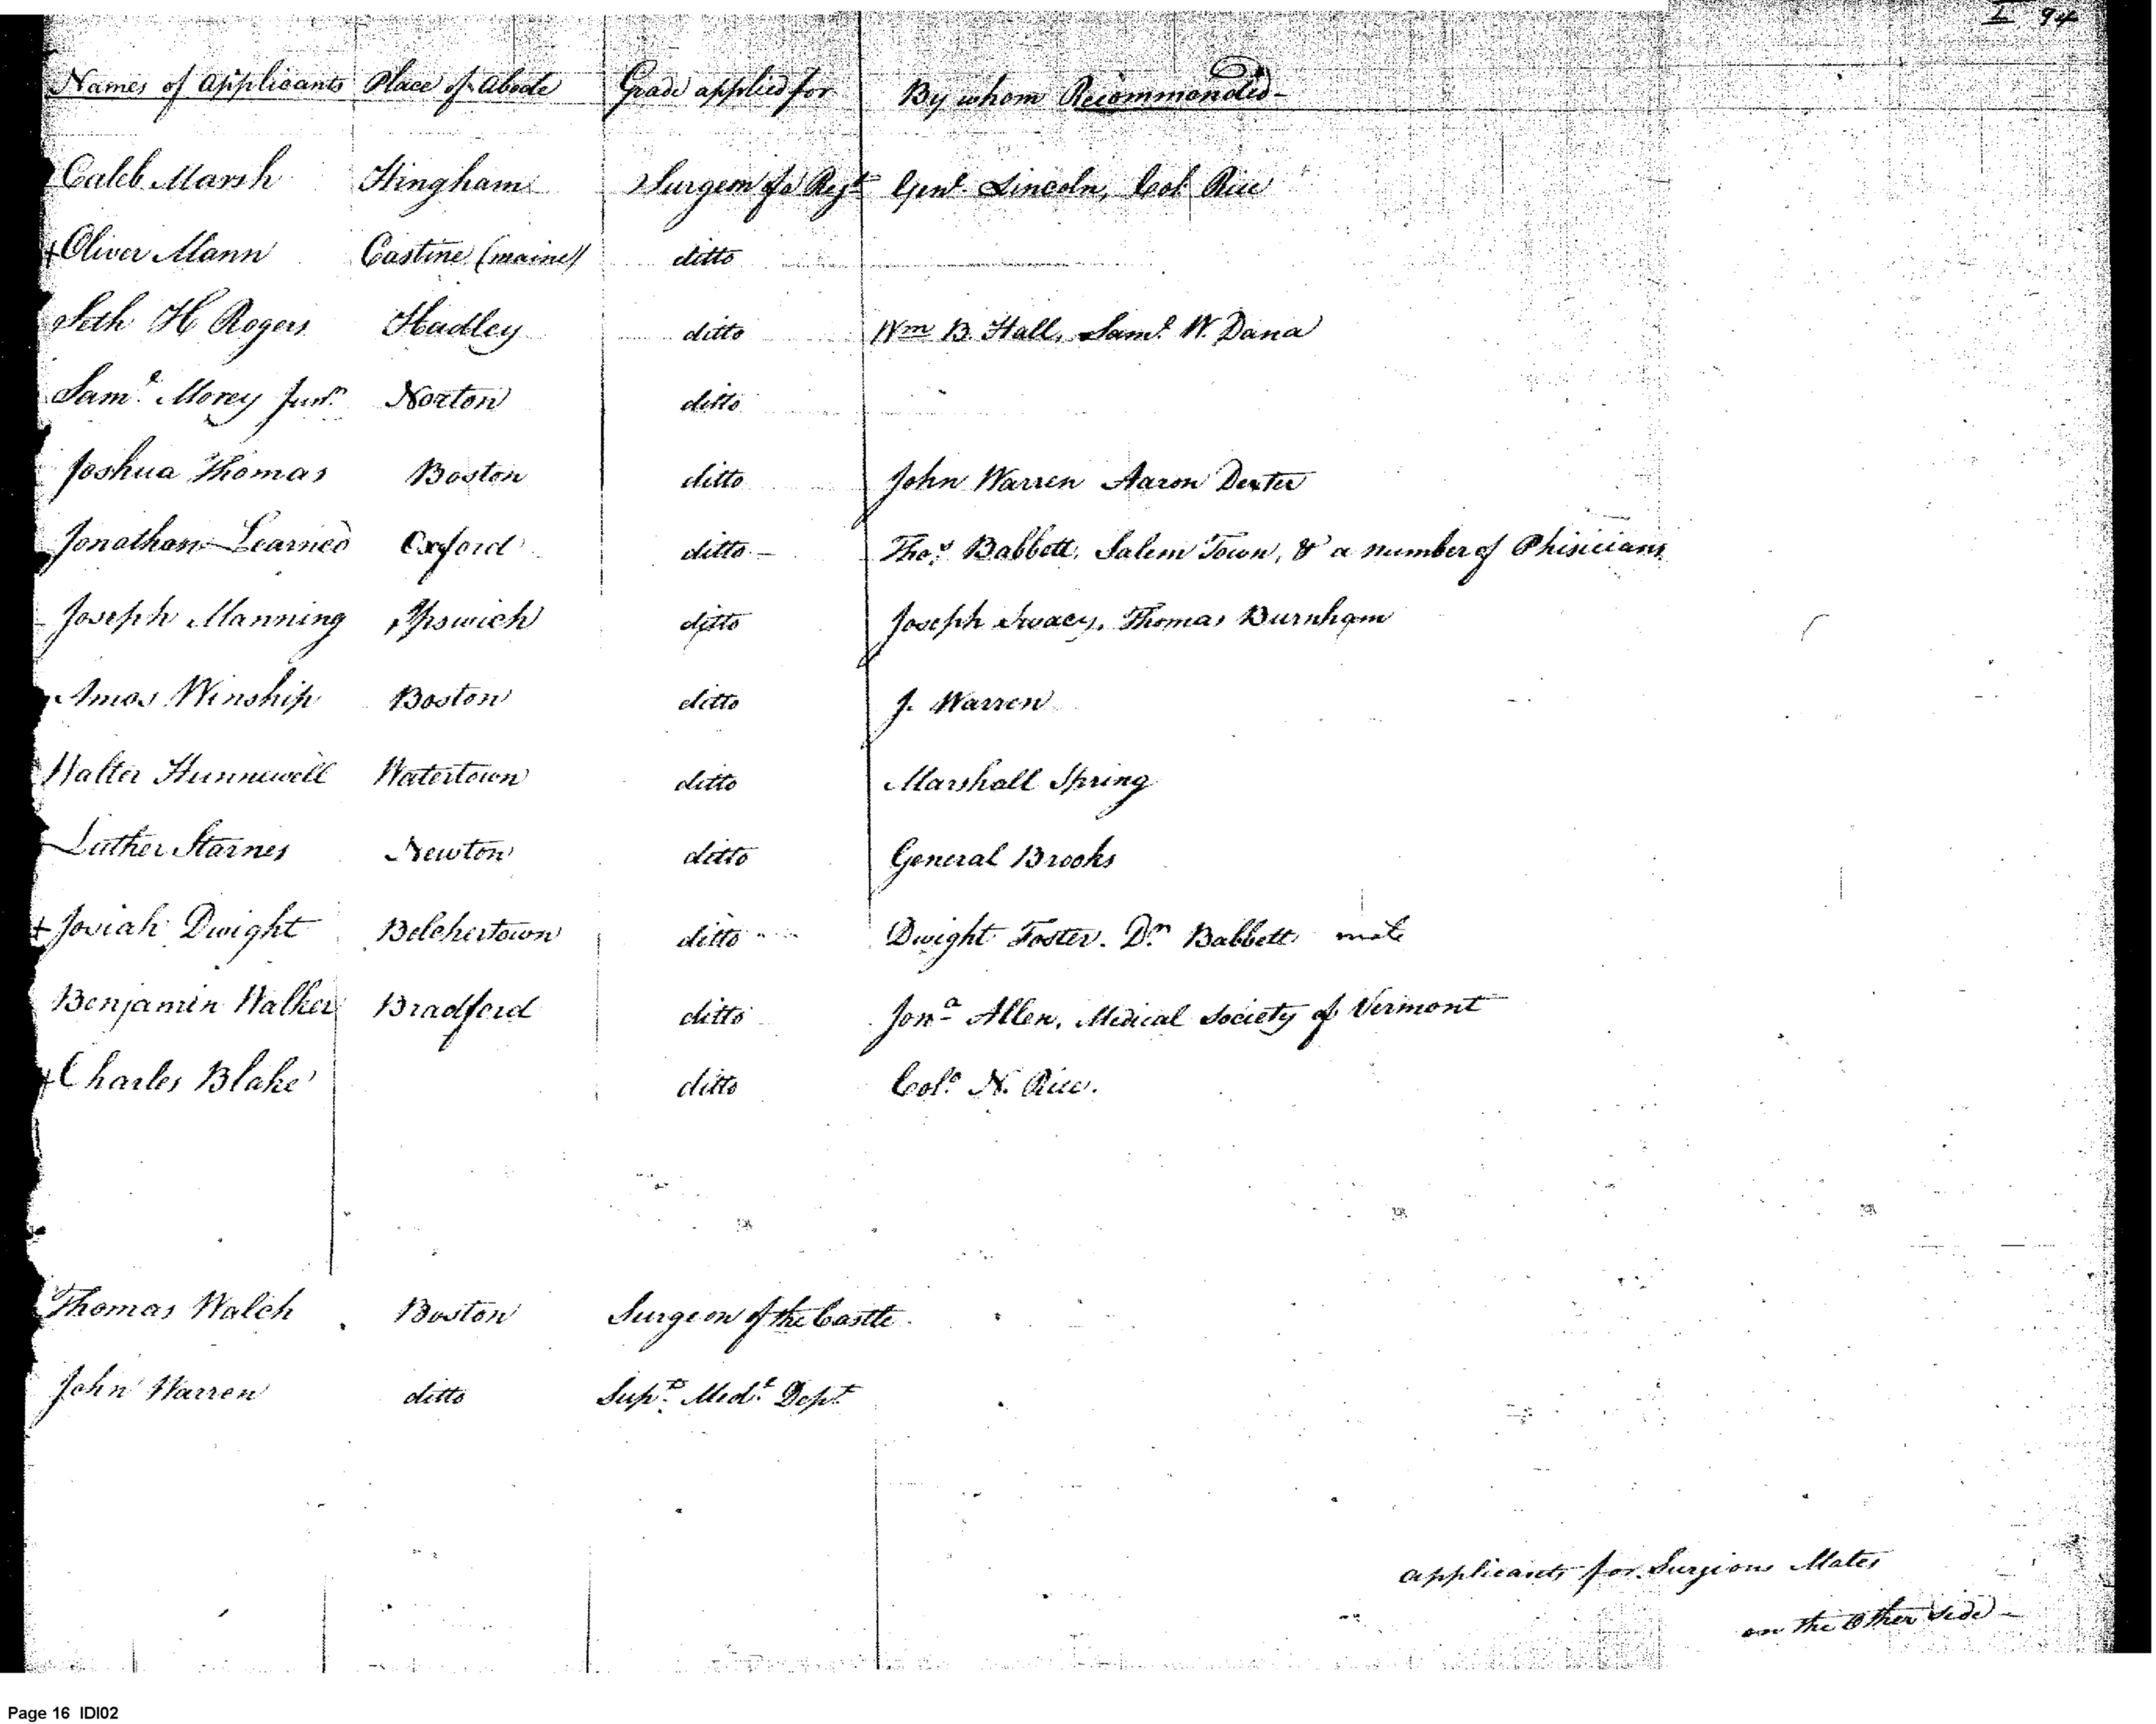 I 94
Names of Applicants Place of Abode Grade applied for By whom Recommended-
Caleb Marsh Hingham Surgeon of a Regt Genl Lincoln, Col Rice
+ Oliver Mann Castine (maine) ditto
Seth H Rogers Hadley ditto Wm B. Hall, Saml W. Dana
Saml Morey Junr Norton ditto
Joshua Thomas Boston ditto John Warren Aaron Dexter
Jonathan Learned Oxford ditto - Thos Babbett, Salem Town, & a number of Phisicians
Joseph Manning Ipswich ditto Joseph Thomas Burnham
Amos Winship Boston ditto J. Warren
Walter Hunnewell Watertown ditto Marshall Spring
Luther Starnes Newton ditto General Brooks
+ Josiah Dwight Belchertown ditto Dwight Foster. Dr Babbett mate
Benjamin Walker Bradford ditto Jona Allen, Medical Society of Vermont
+ Charles Blake ditto Colo N. Rice.
Thomas Walch Boston Surgeon of the Castle.
John Warren ditto Supt Medl Dept
applicants for Surgions Mates
on the Other side -
Page 16 IDI02